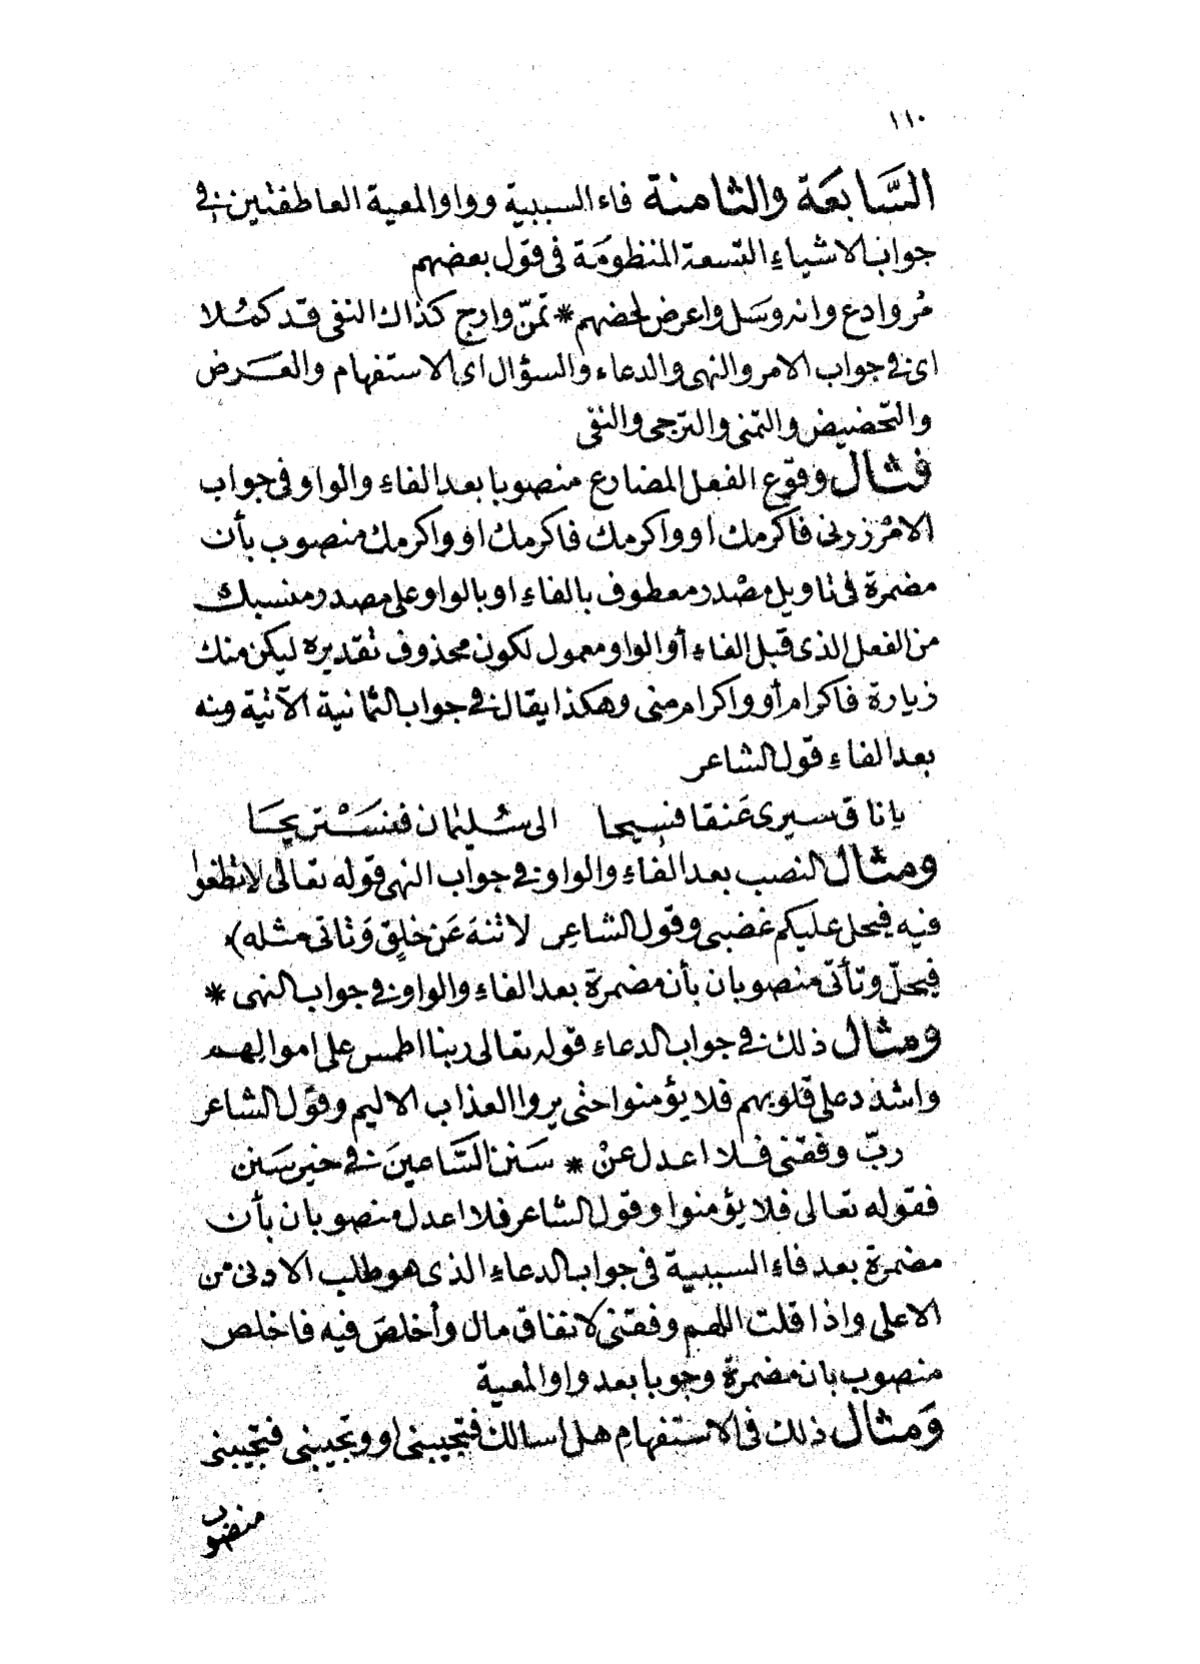 ١١٠
السَّابعَة والثامنة فاء السببية وواو المعية العاطفتين في
جواب الاشياء التسعة المنظومَة فى قول بعضهم
مُر وادع وانه وسَل واعرض لحضهم * تمنّ وارج كذاك النفى قد كمُلا
اى فى جواب الامر والنهى والدعاء والسؤال اى الاستفهام والعَرض
والتحّضيض والتمنى والترجى والنفى
فمثال وقوع الفعل المضارع منصوبا بعد الفاء والواو فى جواب
الامْر زرنى فاكرمك او واكرمك فاكرمك او واكرمك منصوب بأن
مضمرة فى تاويل مصْدر معطوف بالفاء او بالواو على مصدر منسبك
من الفعل الذى قبل الفاء أو الواو معمول لكون محذوف تقديره ليكن منك
زيارة فاكرام أو واكرام منى وهكذا يقال فى جواب الثمانية الآتية ومنه
بعد الفاء قول الشاعر
يا ناق سيرى عَنقا فسيحا الى سُليمان فنسْتريحَا
ومثال النصب بعد الفاء والواو فى جواب النهى قوله تعالى لا تطغوا
فيه فيحل عليكم غضبى وقول الشاعر لا تنهَ عَن خلقٍ وَتاتى مثله)
فيحلّ وتأتى منصوبان بأن مضمرة بعد الفاء والواو فى جواب النهى *
ومثال ذلك فى جواب الدعاء قوله تعالى ربنا اطمس على اموالهم
واشدد على قلوبهم فلا يؤمنوا حتى يروا العذاب الاليم وقول الشاعر
ربّ وفقنى فلا اعدل عنْ * سَنن السَّاعينَ فى خير سَنن
فقوله تعالى فلا يؤمنوا وقول الشاعر فلا اعدل منصوبان بأن
مضمرة بعد فاء السببية فى جواب الدعاء الذى هو طلب الادنى من
الاعلى واذا قلت اللهم وفقنى لانفاق مال وأخلصَ فيه فاخلص
منصوب بان مضمرة وجوبا بعد واو المعية
وَمثال ذلك فى الاستفهام هل اسالك فتجيبنى او وتجيبنى فتجيبنى
منصوب